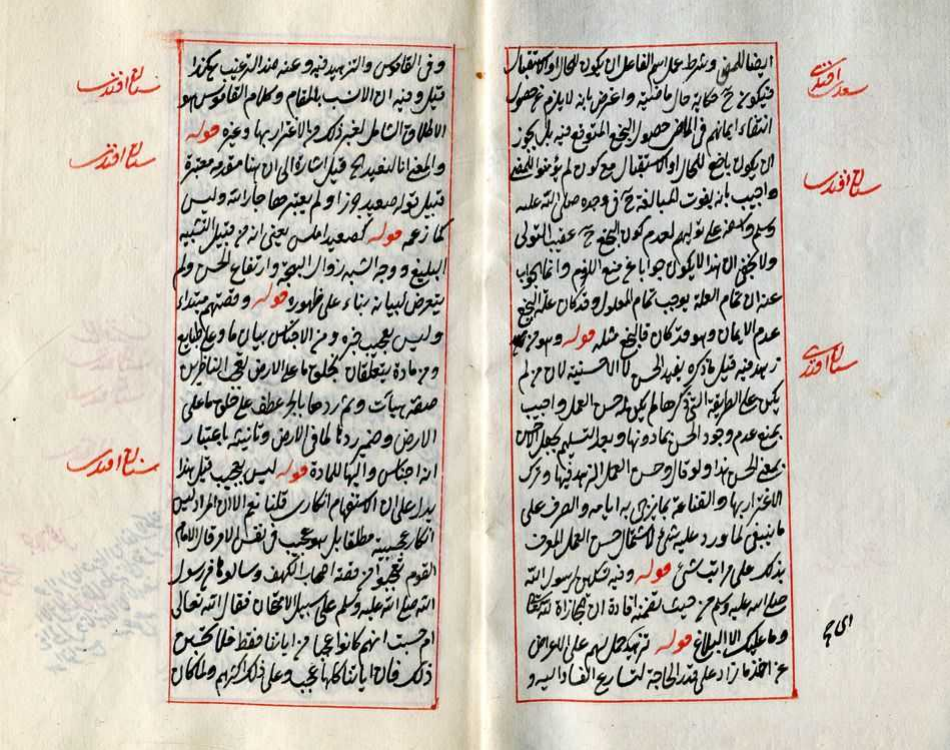 ايضا للمضى وشرط عمل اسم الفاعل ان يكون للحال او الاستقبال
فيكون ح حكاية حال ماضية واعترض بانه لا يلزم حصول
انتفاء ايمانهم في الماضى حصول البخع المتوقع فيه بل يجوز
ان يكون باخع للحال او الاستقبال مع كون لم يؤمنوا للمضى
واجيب بانه يفوت المبالغة ح في وجده صلى الله عليه
وسلم على توليهم لعدم كون البخع ح عقيب التولى
ولا يخفى ان هذا لا يكون جوابا منع اللزوم وانما الجواب
عنه ان تمام العلة يوجب تمام المعلول وقد كان علة البخع
عدم الايمان وهو قد كان فالبخع مثله قوله وهو من
زهد فيه قيل ما ذكره يفيد الحسن لا الاحسنية لان من لم
يكن على الطريقة التى ذكرها لم يكن له حسن العمل واجيب
بمنع عدم وجود الحسن بما دونها وبعد التسليم يجعل الاحسن
بمعنى الحسن هذا ولو قال وحسن العمل الزهد فيها وترك
الاغترار بها والقناعة بما يزجى به ايامه والصرف على
ما ينبغى لما ورد عليه شئ لاشتمال حسن العمل
بذلك على مراتب شتى قوله وفيه تسكين لرسول الله
صلى الله عليه وسلم من حيث تضمنه افادة ان مجازاة
وما عليك الا البلاغ قوله تزهيد حمل لهم على الاعراض
عن اخذ ما زاد على قدر الحاجة لتسارع الفناء اليه و
سعدى افندى
سنان افندى
سنان افندى
اى ح
وفى القاموس والتزهيد فيه وعنه ضد الترغيب هكذا
قيل وفيه ان الانسب بالمقام وكلام القاموس هو
الاطلاق الشامل لغير ذلك من الاغترار بها وغيره قوله
والمعنى انا لنعيد قيل اشارة الى ان هنا مقدمة معتبرة
قبيل قوله صعيدا جرزا ولم يعتبرها جار الله وليس
كما زعمه قوله كصعيد املس يعنى انه من قبيل التشبيه
البليغ ووجه الشبه زوال البهجة وارتفاع الحسن ولم
يتعرض لبيانه بناء على ظهوره قوله وقصتهم مبتداء
وليس بعجيب خبره ومن الاجناس بيان ما وعلى طبايع
ومن مادة يتعلقان بخلق ما على الارض لقى الناظرين
صفة هيآت وثم ردها بالجر عطف على خلق ما على
الارض وضمير ردها لما فى الارض وتانيثه باعتبار
انه اجناس واليها للمادة قوله ليس بعجيب قيل هذا
يدل على ان الاستفهام انكارى قلنا نعم الا ان المراد ليس
انكار عجبية مطلقا بل هو عجب فى نفس الامر قال الامام
القوم تعجبوا من قصة اصحاب الكهف وسالوها من رسول
الله صلى الله عليه وسلم على سبيل الامتحان فقال الله تعالى
ام حسبت انهم كانوا عجبا من اياتنا فقط فلا تحسبن
ذلك فان اياتنا كلها عجب وعلى ذلك اكثرهم ولما كان
سنان افندى
سنان افندى
سنان افندى